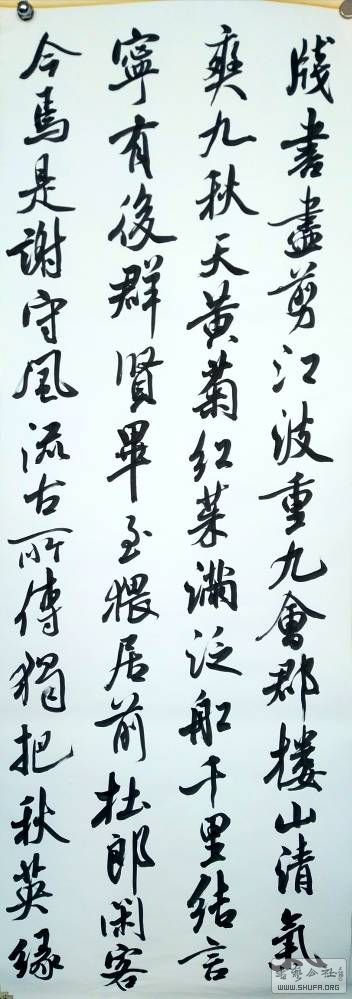 牋書盡剪江波重九會郡樓山清氣
爽九秋天黃菊紅茱滿泛船千里結言
寧有後群賢畢至猥居前杜郎閑客
今焉是謝守風流古所傳獨把秋英緣
WWW.SHUFA.ORG